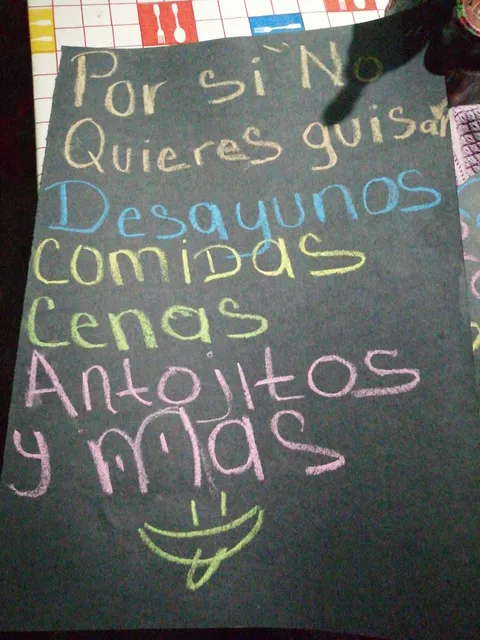 Por si "No
Quieres guisar
Desayunos
Comidas
Cenas
Antojitos
y Mas